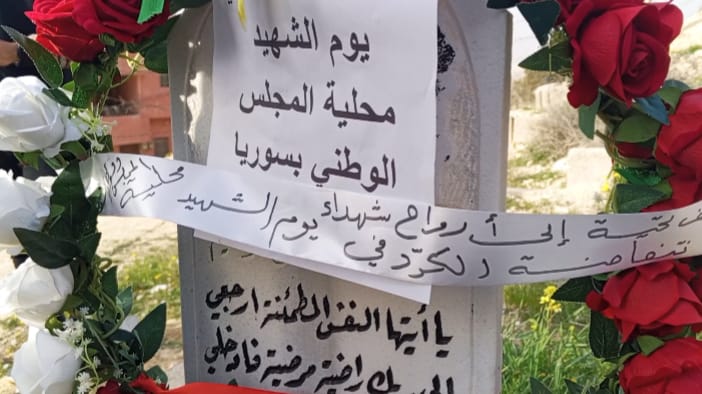 يوم الشهيد
محلية المجلس
الوطني بسوريا
تحية إلى أرواح شهداء
الكرد في يوم الشهيد محلية
يا أيتها النفس المطمئنة ارجعي
راضية مرضية فادخلي